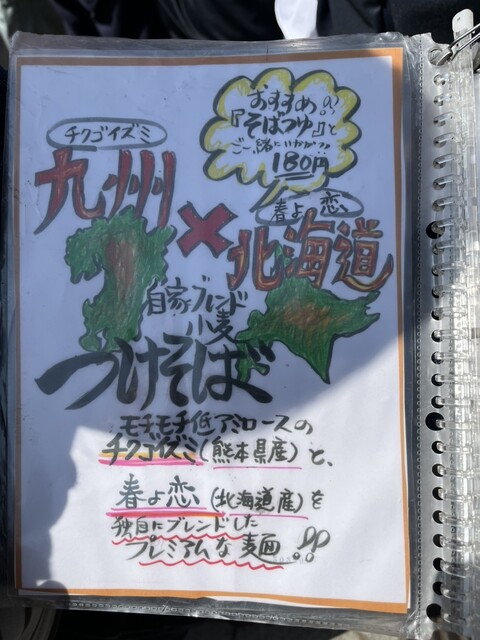 おすすめの
『そばつゆ』と
ご一緒にいかが??
180円
チクゴイズミ
九州
×
春よ恋
北海道
自家ブレンド
小麦
つけそば
モチモチ低アミロースの
チクゴイズミ(熊本県産)と、
春よ恋(北海道産)を
独自にブレンドした
プレミアムな麺!!